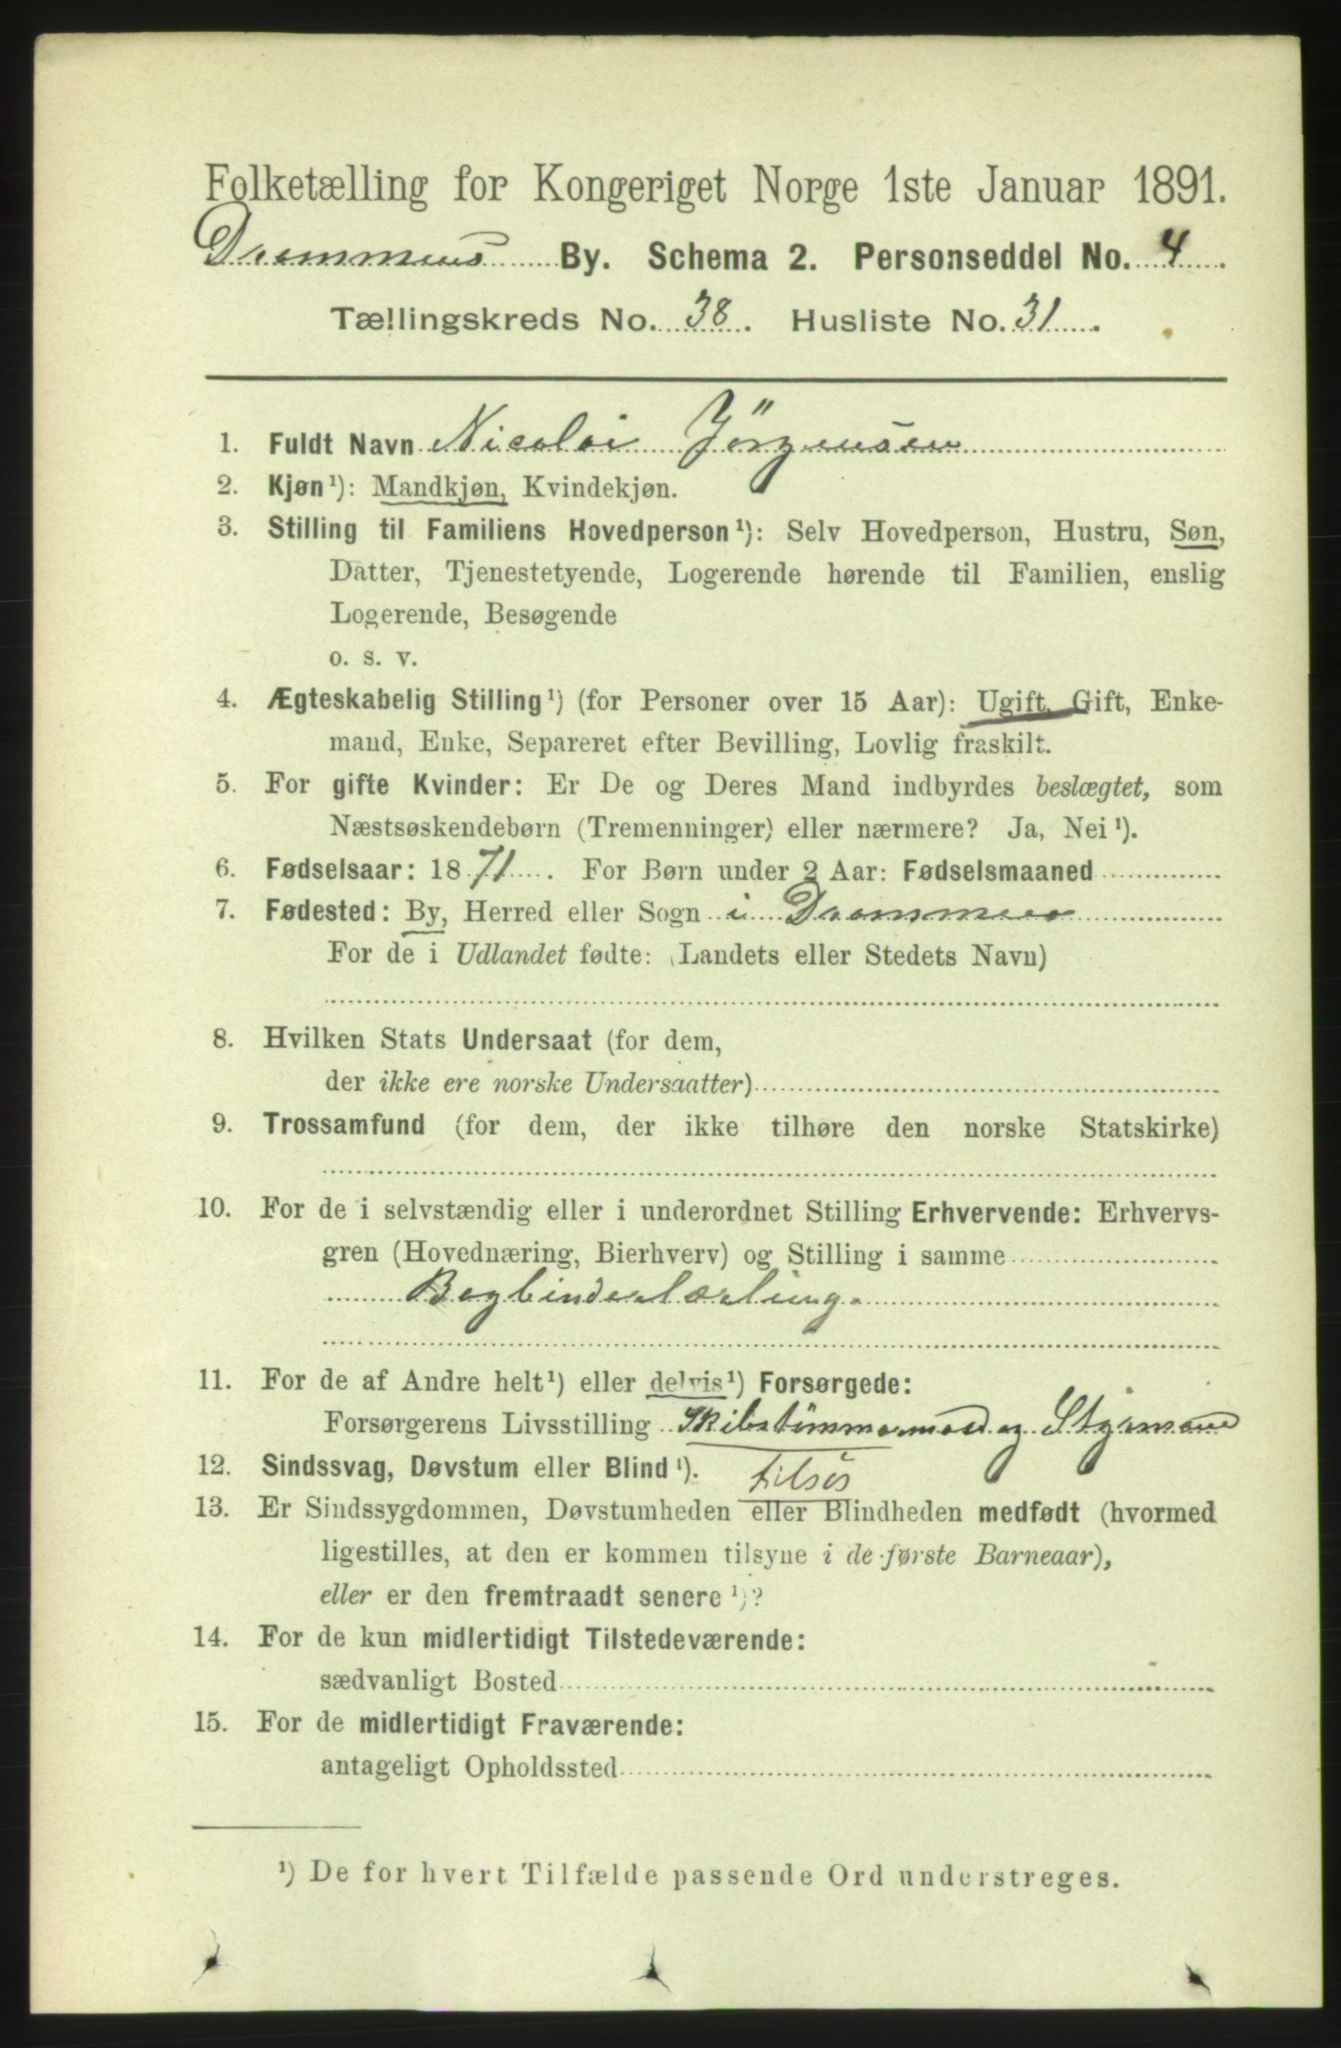 Folketælling for Kongeriget Norge 1ste Januar 1891.
Drammens By. Schema 2. Personseddel No. 4.
Tællingskreds No. 38. Husliste No. 31.
1. Fuldt Navn Nicolai Jörgensen
2. Kjøn¹): Mandkjøn, Kvindekjøn.
3. Stilling til Familiens Hovedperson¹): Selv Hovedperson, Hustru, Søn,
Datter, Tjenestetyende, Logerende hørende til Familien, enslig
Logerende, Besøgende
o. s. v.
4. Ægteskabelig Stilling¹) (for Personer over 15 Aar): Ugift, Gift, Enke-
mand, Enke, Separeret efter Bevilling, Lovlig fraskilt.
5. For gifte Kvinder: Er De og Deres Mand indbyrdes beslægtet, som
Næstsøskendebørn (Tremenninger) eller nærmere? Ja, Nei¹).
6. Fødselsaar: 1871. For Børn under 2 Aar: Fødselsmaaned
7. Fødested: By, Herred eller Sogn i Drammen
For de i Udlandet fødte: (Landets eller Stedets Navn)
8. Hvilken Stats Undersaat (for dem,
der ikke ere norske Undersaatter)
9. Trossamfund (for dem, der ikke tilhøre den norske Statskirke)
10. For de i selvstændig eller i underordnet Stilling Erhvervende: Erhvervs-
gren (Hovednæring, Bierhverv) og Stilling i samme
Bogbinderlærling.
11. For de af Andre helt¹) eller delvis¹) Forsørgede:
Forsørgerens Livsstilling Skibstømmermand og Styrmand
12. Sindssvag, Døvstum eller Blind¹). tilsøs
13. Er Sindssygdommen, Døvstumheden eller Blindheden medfødt (hvormed
ligestilles, at den er kommen tilsyne i de første Barneaar),
eller er den fremtraadt senere¹)?
14. For de kun midlertidigt Tilstedeværende:
sædvanligt Bosted
15. For de midlertidigt Fraværende:
antageligt Opholdssted
¹) De for hvert Tilfælde passende Ord understreges.